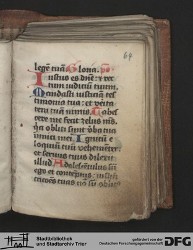 64
legem tuā Gloria.
Iustus es dñe: et rec
tum iudiciū tuum.
Mandasti iusticiā tes
timonia tua: et verita
tem tuā nimis. Tabes
cere me fecit zelus me⁹
quia obliti sunt v̄ba tua
inimici mei. Ignitū e
loquiū tuū vehementer
et seruus tuus dilexit
illud. Adolescentulus sū
ego et contēptus: iustifi
cationes tuas nō sū oblit⁹
Stadtbibliothek
und Stadtarchiv Trier
gefördert von der
Deutschen Forschungsgemeinschaft
DFG